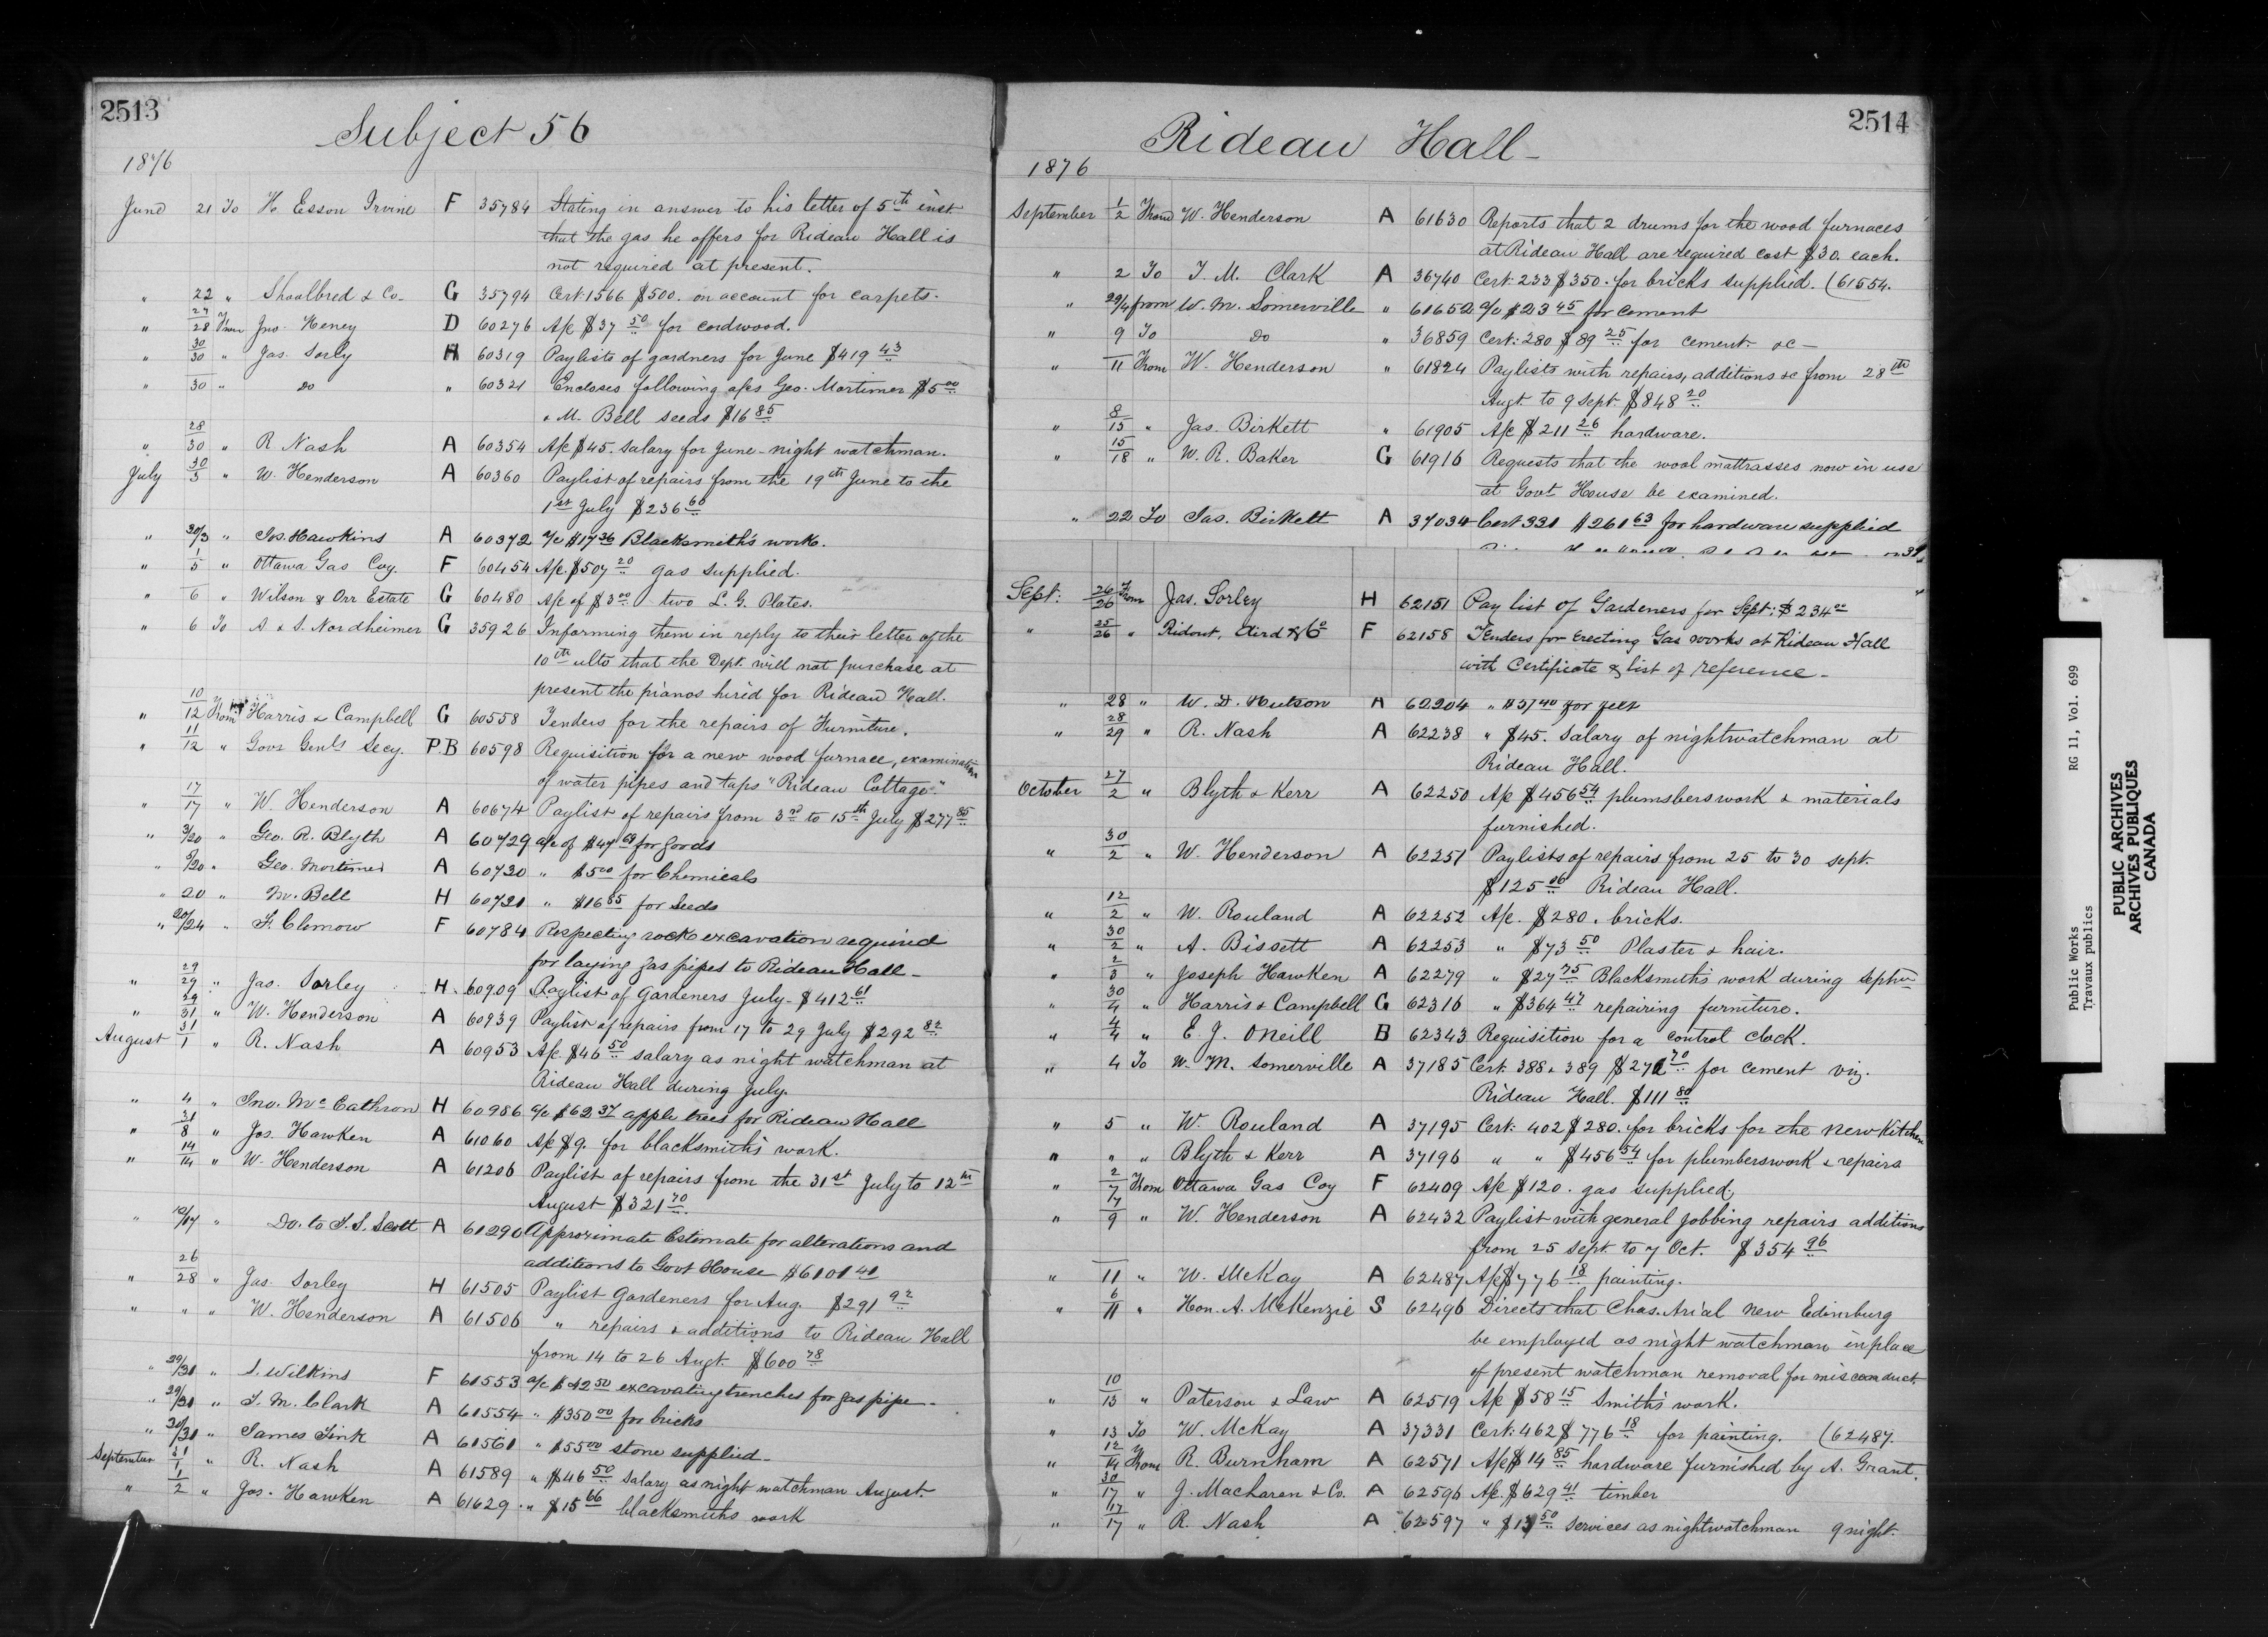 2513
Subject 56
1876
June 21 To H Esson Irvine F 35784 Stating in answer to his letter of 5th inst
that the gas he offers for Rideau Hall is
not required at present.
" 22 " Shoolbred & Co. G 35794 Cert 1566 $500. on account for carpets.
" 27/28 From Jno. Heney D 60276 A/c $37 50 for cordwood.
" 30/30 " Jas. Sorly H 60319 Paylists of gardners for June $419 43
" 30 " Do " 60321 Encloses following a/cs Geo. Mortimer $5 00
& M. Bell seeds $16 85
" 28/30 " R Nash A 60354 A/c $45. Salary for June - night watchman.
July 30/3 " W. Henderson A 60360 Paylist of repairs from the 19th June to the
1st July $236 60
" 30/3 " Jos. Hawkins A 60372 a/c $17 36 Blacksmith's work.
" 1/5 " Ottawa Gas Coy. F 60454 A/c. $507 20 gas supplied.
" 6 " Wilson & Orr Estate G 60480 A/c of $3 00 two L. G. Plates.
" 6 To A & S. Nordheimer G 35926 Informing them in reply to their letter of the
10th ulto that the Dept. will not purchase at
present the pianos hired for Rideau Hall.
" 10/12 From Harris & Campbell G 60558 Tenders for the repairs of Furniture.
" 11/12 " Govr Genls Secy. P.B 60598 Requisition for a new wood furnace, examination
of water pipes and taps "Rideau Cottage."
" 17/17 " W. Henderson A 60674 Paylist of repairs from 3rd to 15th July $277 85
" 3/20 " Geo. R. Blyth A 60729 a/c of $47 for goods
" 5/20 " Geo. Mortimer A 60730 " $5 00 for Chemicals
" 20 " M. Bell H 60731 " $16 85 for Seeds
" 20/24 " F. Clemow F 60784 Respecting rock excavation required
for laying gas pipes to Rideau Hall -
" 29/29 " Jas. Sorley H. 60909 Paylist of Gardeners July - $412 61
" 29/31 " W. Henderson A 60939 Paylist of repairs from 17 to 29 July $292 82
August 31/1 " R. Nash A 60953 A/c. $46 50 salary as night watchman at
Rideau Hall during July.
" 4 " Jno. Mc Eathron H 60986 a/c $62 37 apple trees for Rideau Hall
" 31/8 " Jos. Hawken A 61060 A/c $9. for blacksmith's work.
" 14/14 " W. Henderson A 61206 Paylist of repairs from the 31st July to 12th
August $321 70
" 12/17 " Do. to T. S. Scott A 61290 Approximate Estimate for alterations and
additions to Govt House $6101 41
" 26/28 " Jas. Sorley H 61505 Paylist Gardeners for Aug. $291 92
" " " W. Henderson A 61506 " repairs & additions to Rideau Hall
from 14 to 26 Augt. $600 78
" 29/31 " J. Wilkins F 61553 a/c $42 50 excavating trenches for gas pipe -
" 29/31 " T. M. Clark A 61554 " $350 00 for bricks
" 30/31 " James Fink A 61561 " $55 00 stone supplied -
September 31/1 " R. Nash A 61589 " $46 50 Salary as night watchman August.
" 1/2 " Jos. Hawken A 61629 " $15 66 blacksmiths work
2514
Rideau Hall -
1876
September 1/2 From W. Henderson A 61630 Reports that 2 drums for the wood furnaces
at Rideau Hall are required cost $30. each.
" 2 To T. M. Clark A 36740 Cert. 233 $350. for bricks supplied. (61554.
" 29/4 from W. M. Somerville " 61652 a/c $23 45 for cement
" 9 To Do " 36859 Cert: 280 $89 25 for cement &c -
" 11 From W. Henderson " 61824 Paylists with repairs, additions &c from 28th
Augt to 9 Sept. $848 20
" 8/15 " Jas. Birkett " 61905 A/c $211 26 hardware.
" 15/18 " W. R. Baker G 61916 Requests that the wool mattrasses now in use
at Govt House be examined.
" 22 To Jas. Birkett A 37034 Cert 331 $261 63 for hardware supplied
Sept: 26/26 From Jas. Sorley H 62151 Pay list of Gardeners for Sept: $234 00
" 25/26 " Ridout, Aird & Co F 62158 Tenders for Erecting Gas works at Rideau Hall
with Certificate & list of reference -
" 28 " W. D. Hutson A 62204 " $37 40 for felt
" 28/29 " R. Nash A 62238 " $45. Salary of nightwatchman at
Rideau Hall.
October 27/2 " Blyth & Kerr A 62250 A/c $456 54 plumsbers work & materials
furnished.
" 30/2 " W. Henderson A 62251 Paylists of repairs from 25 to 30 Sept.
$125 06 Rideau Hall.
" 12/2 " W. Rouland A 62252 A/c. $280. bricks.
" 30/2 " A. Bissett A 62253 " $73 50 Plaster & hair.
" 2/3 " Joseph Hawken A 62279 " $27 75 Blacksmith's work during Septr
" 30/4 " Harris & Campbell G 62316 " $364 47 repairing furniture.
" 4/4 " E. J. ONeill B 62343 Requisition for a control clock.
" 4 To W. M. Somerville A 37185 Cert. 388 & 389 $271 70 for cement viz.
Rideau Hall. $111 80
" 5 " W. Rouland A 37195 Cert. 402 $280. for bricks for the New Kitchen
" " " Blyth & Kerr A 37196 " " $456 54 for plumberswork & repairs
" 2/7 From Ottawa Gas Coy F 62409 A/c $120. gas supplied,
" 7/9 " W. Henderson A 62432 Paylist with general jobbing repairs additions
from 25 Sept. to 7 Oct. $354 96
" 11 " W. McKay A 62487 A/c $776 18 painting.
" 6/11 " Hon. A. McKenzie S 62496 Directs that Chas. Arial New Edinburg
be employed as night watchman in place
of present watchman removal for misconduct.
" 10/13 " Paterson & Law A 62519 A/c $58 15 Smith's work.
" 13 To W. McKay A 37331 Cert. 462 $776 18 for painting. (62487.
" 12/14 From R. Burnham A 62571 A/c $14 85 hardware furnished by A. Grant.
" 30/17 " J. Maclaren & Co. A 62596 A/c. $629 41 timber
" 17/17 " R. Nash A 62597 " $13 50 Services as nightwatchman 9 night.
Public Works RG 11, Vol. 699
Travaux publics
PUBLIC ARCHIVES
ARCHIVES PUBLIQUES
CANADA